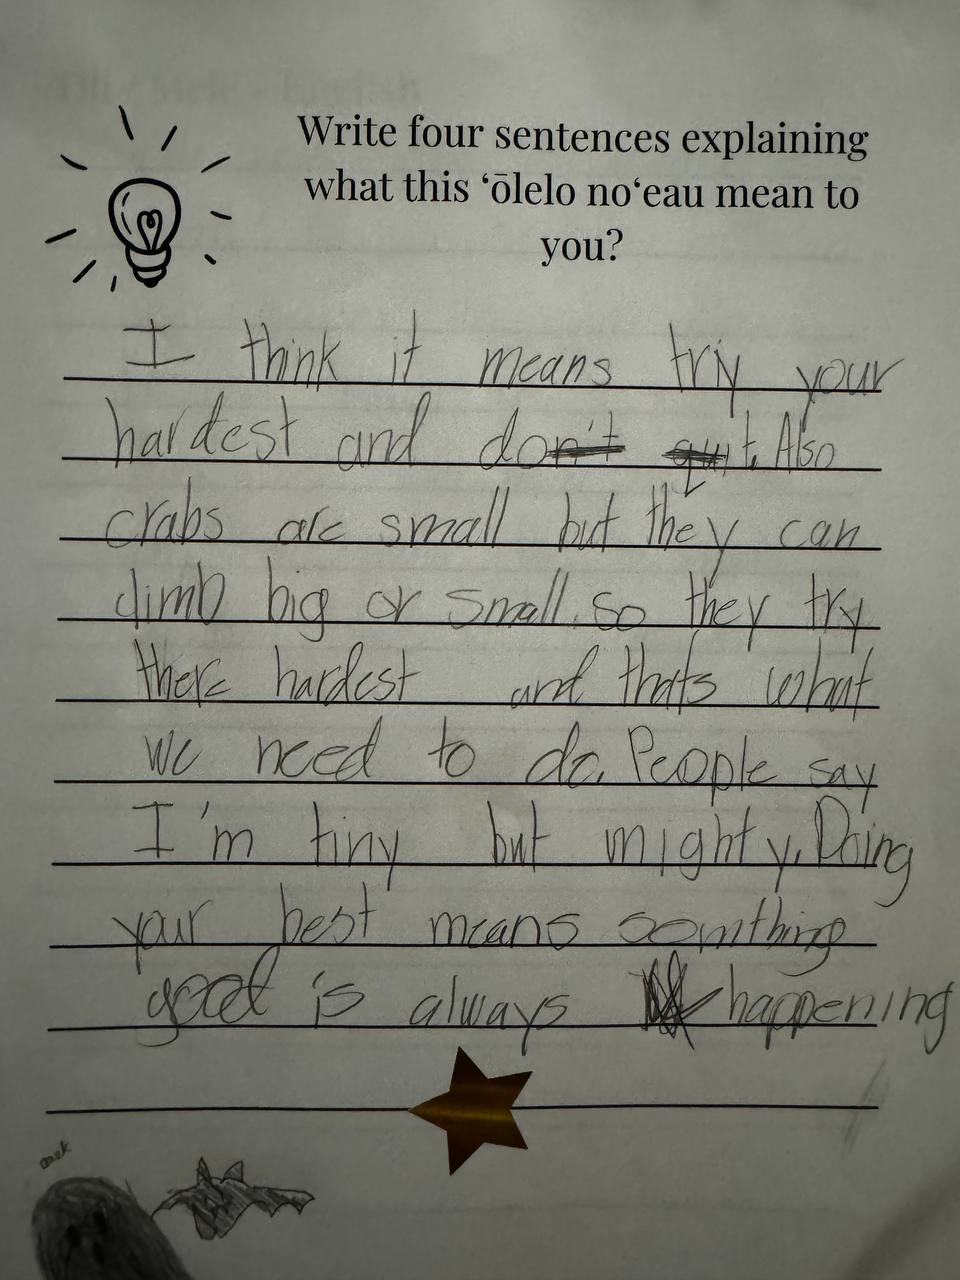 Write four sentences explaining
what this ‘ōlelo no‘eau mean to
you?
I think it means triy your
hardest and don't quit. Also
crabs are small but they can
climb big or small. so they try
there hardest and thats what
we need to do. People say
I'm tiny but mighty. Doing
your best means somithing
good is always happening